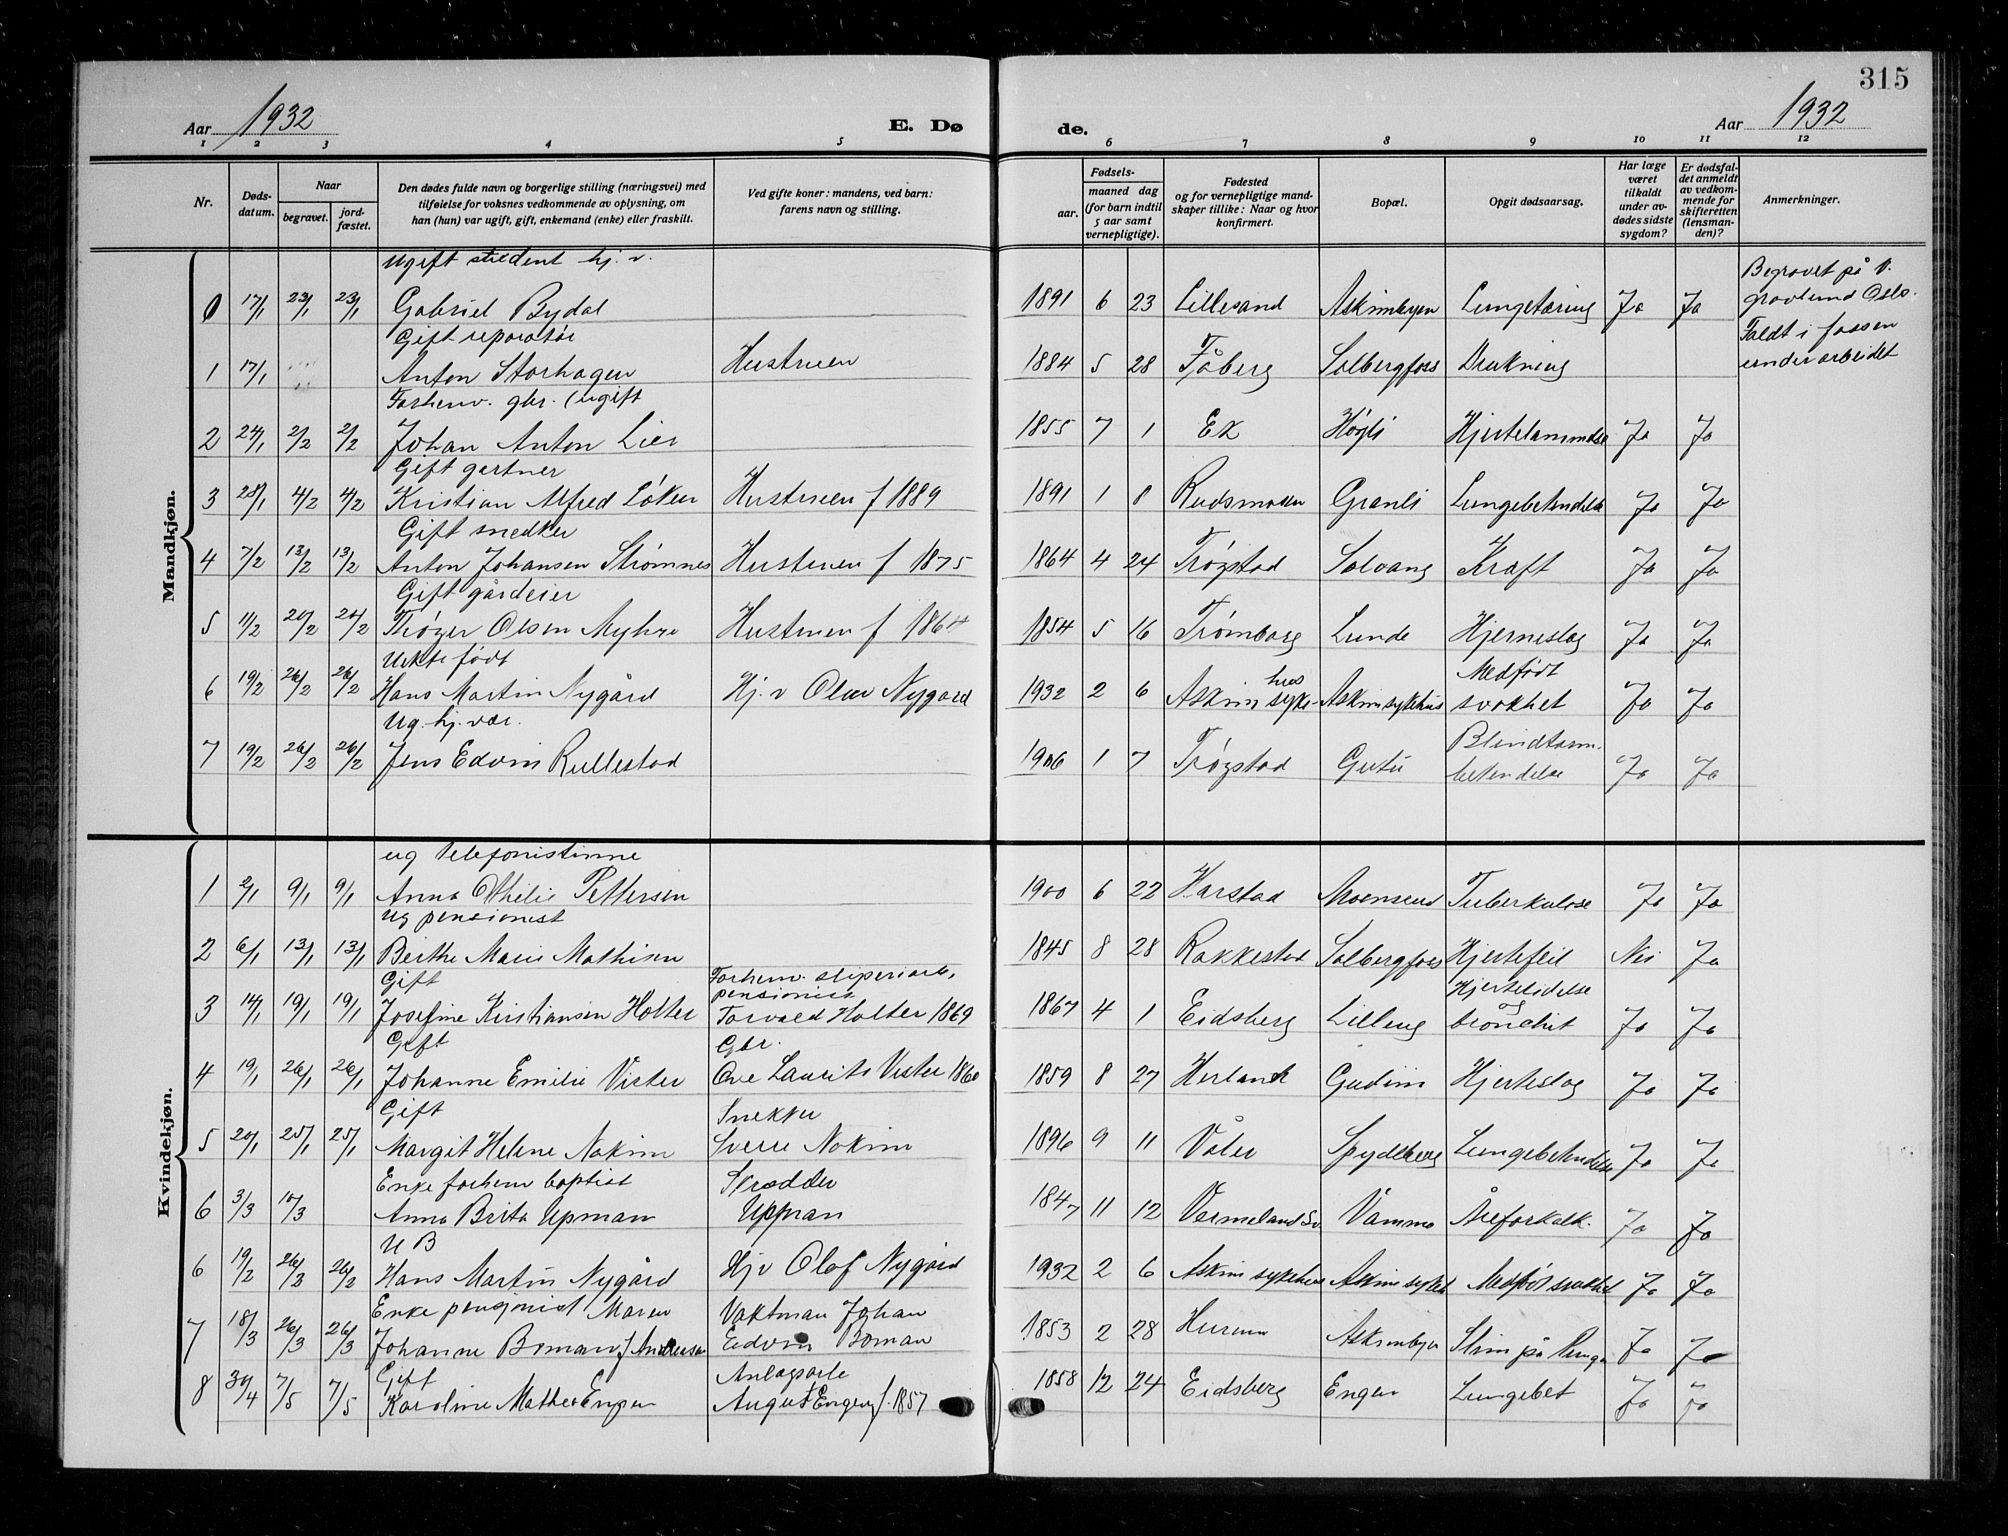 315
Aar 1932
E. Dø
de.
Aar 1932
1 2 3 4 5 6 7 8 9 10 11 12
Nr.
Døds-
datum.
Naar
begravet.
jord-
fæstet.
Den dødes fulde navn og borgerlige stilling (næringsvei) med
tilføielse for voksnes vedkommende av oplysning, om
han (hun) var ugift, gift, enkemand (enke) eller fraskilt.
Ved gifte koner: mandens, ved barn:
farens navn og stilling.
Fødsels-
aar. maaned dag
(for barn indtil
5 aar samt
vernepligtige).
Fødested
og for vernepligtige mand-
skaper tillike: Naar og hvor
konfirmert.
Bopæl.
Opgit dødsaarsag.
Har læge
været
tilkaldt
under av-
dødes sidste
sygdom?
Er dødsfal-
det anmeldt
av vedkom-
mende for
skifteretten
(lensman-
den)?
Anmerkninger.
Mandkjøn.
Ugift student hj. v.
0 17/1 23/1 23/1 Gabriel Bydal 1891 6 23 Lillesand Askimbyen Lungetæring Ja Ja
Begravet på V.
gravlund Oslo.
Gift reparatør
1 17/1 Anton Storhagen Hustruen 1884 5 28 Fåberg Solbergfoss Drukning
Faldt i fossen
under arbeidet
Forhenv. gbr. (ugift
2 24/1 2/2 2/2 Johan Anton Lier 1855 7 1 Ek Høgli Hjertelammelse Ja Ja
Gift gartner
3 28/1 4/2 4/2 Kristian Alfred Løken Hustruen f 1889 1891 1 8 Rudsmoen Granli Lungebetendelse Ja Ja
Gift snedker
4 7/2 13/2 13/2 Anton Johansen Strømnes Hustruen f 1875 1864 4 24 Trøgstad Solvang Kraft Ja Ja
Gift gårdeier
5 11/2 20/2 20/2 Trøger Olsen Myhre Hustruen f 1864 1854 5 16 Trømborg Lunde Hjerneslag Ja Ja
Uekte født
6 19/2 26/2 26/2 Hans Martin Nygård Hj. v Olav Nygaard 1932 2 6 Askim syke-
hus
Askim sykehus
Medfødt
svakhet Ja Ja
Ug. hj. vær.
7 19/2 26/2 26/2 Jens Edvin Rullestad 1906 1 7 Trøgstad Gutu
Blindtarm-
betendelse Ja Ja
Kvindekjøn.
ug Telefonistinne
1 2/1 9/1 9/1 Anna Othelie Pettersen 1900 6 22 Harstad Moensund Tuberkulose Ja Ja
Ug pensionist
2 6/1 13/1 13/1 Berthe Marie Mathisen 1845 8 28 Rakkestad Solbergfoss Hjertefeil Nei Ja
Gift
Forhenv. sliperiarb,
pensionist
3 14/1 19/1 19/1 Josefine Kristiansen Holter Torvald Holter 1869 1867 4 1 Eidsberg Lilleng
Hjertelidelse
og
bronchit Ja Ja
Gift
Gbr.
4 19/1 26/1 26/1 Johanne Emilie Vister Ove Laurits Vister 1860 1859 8 27 Herland Gudim Hjerteslag Ja Ja
Gift
Snekker
5 20/1 25/1 25/1 Margit Helene Nokim Sverre Nokim 1896 9 11 Våler Spydeberg Lungebetendelse Ja Ja
Enke forhenv baptist
Skredder
6 3/3 10/3 Anna Brita Upman Uppman 1847 11 12 Vermeland Sv. Vammo Åreforkalk. Ja Ja
U B
6 19/2 26/2 26/2 Hans Martin Nygård Hj v Olaf Nygård 1932 2 6 Askim sykehus Askim sykeh Medfør svakhet Ja Ja
Enke pensjonist Maren
Vaktman Johan
7 18/3 26/3 26/3 Johanne Boman f Andersen Edvin Boman 1853 2 28 Hurum Askimbyen Slim på lunge Ja Ja
Gift
Anlagsarb
8 30/4 7/5 7/5 Karoline Mathea Engen August Engen f. 1857 1858 12 24 Eidsberg Engen Lungebet Ja Ja